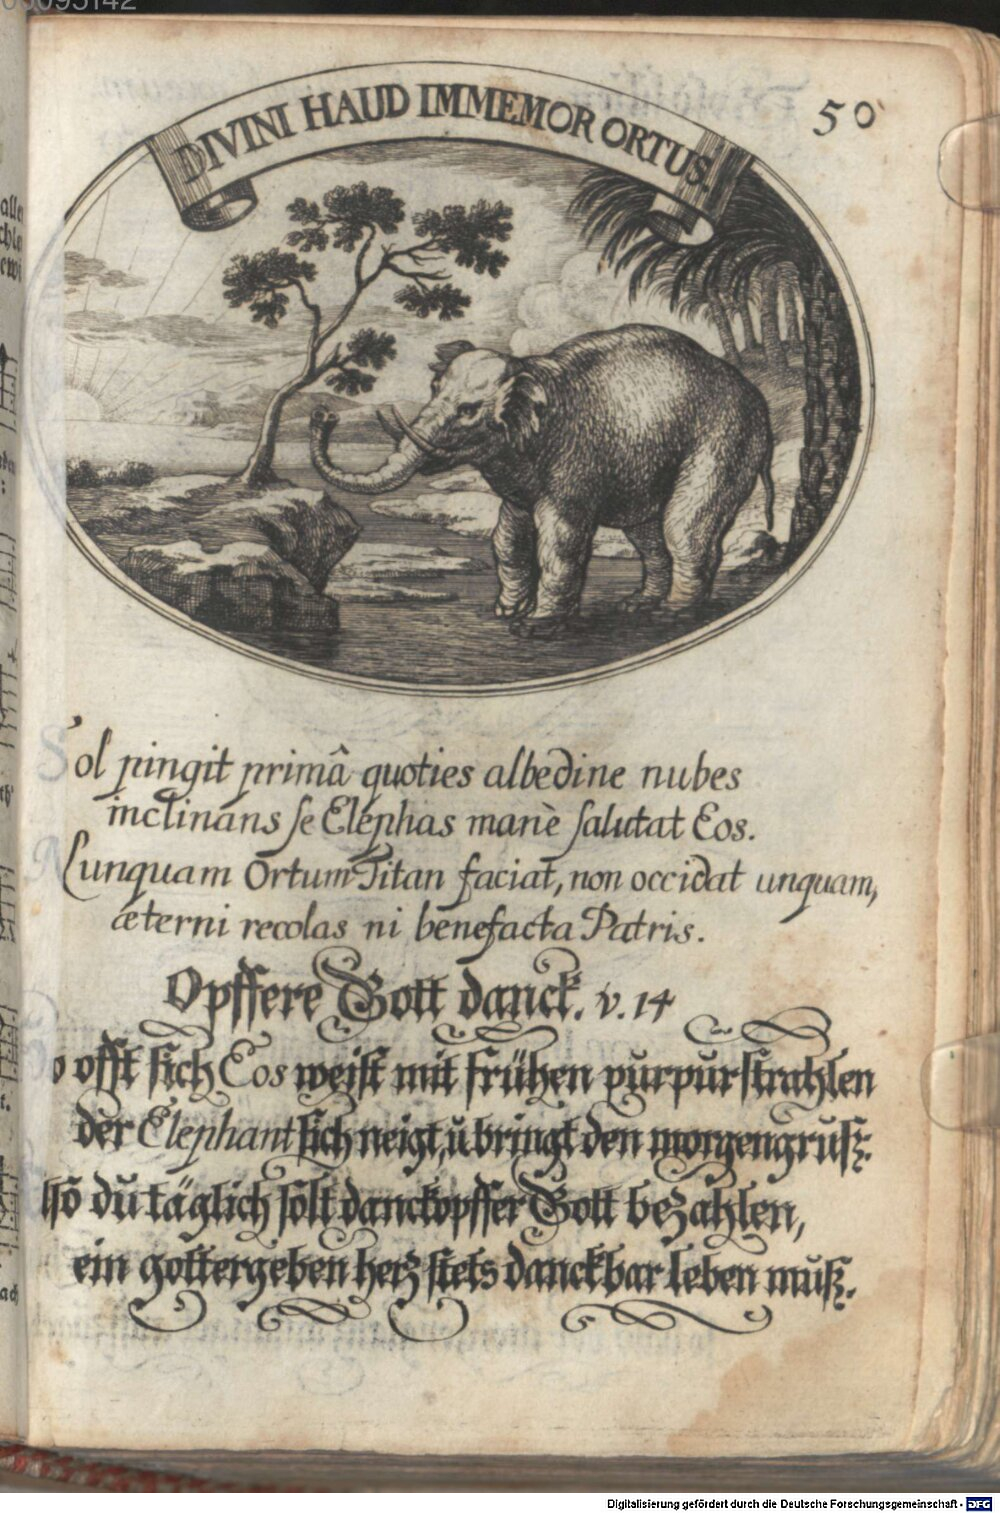 DIVINI HAUD IMMEMOR ORTUS.
50
Sol pingit primâ quoties albedine nubes
inclinans se Elephas manè salutat Eos.
Nunquam Ortum Titan faciat, non occidat unquam,
æterni recolas ni benefacta Patris.
Opffere Gott danck. v. 14
offt sich Eos weist mit frühen purpurstrahlen
der Elephant sich neigt, ŭ bringt den morgengruß:
du täglich solt danckopffer Gott bezahlen,
ein gottergeben herz stets danckbar leben muß.
Digitalisierung gefördert durch die Deutsche Forschungsgemeinschaft - DFG